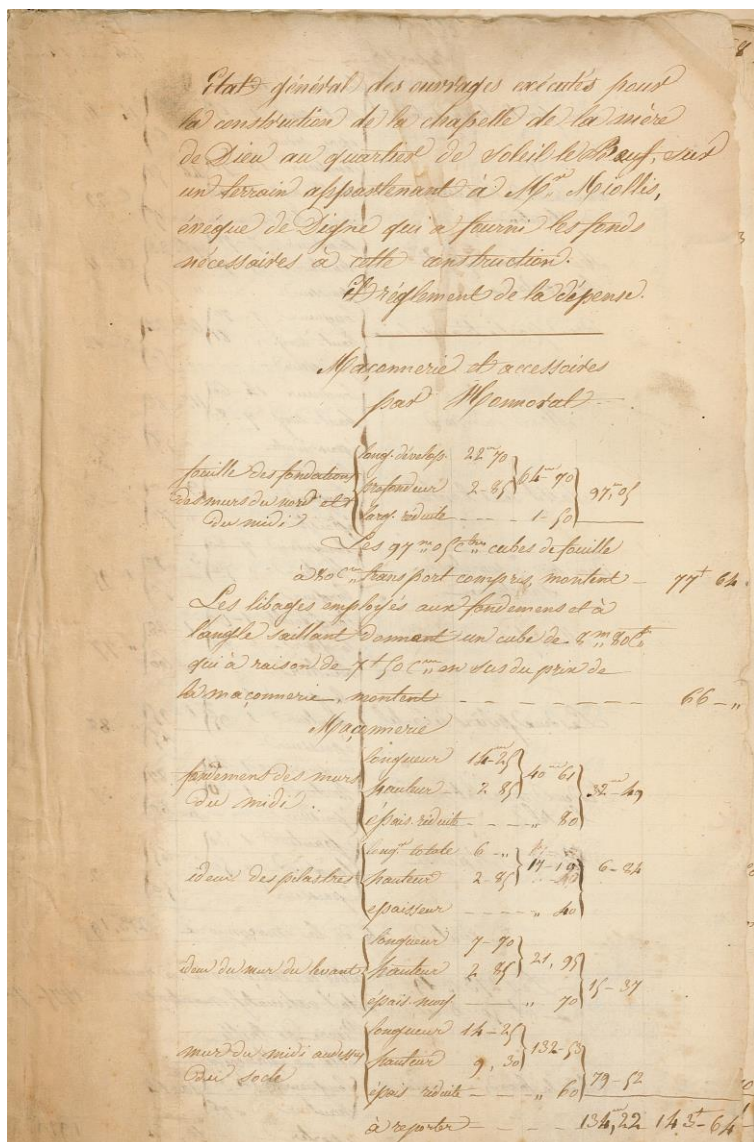 8
Etat général des ouvrages exécutés pour
la construction de la chapelle de la mère
de Dieu au quartier de Soleil-le-Bœuf, sur
un terrain appartenant à Mgr Miollis,
évêque de Digne qui a fourni les fonds
nécessaires à cette construction.
Et réglement de la dépense.
Maçonnerie et accessoires
par Honnorat
fouille des fondations
des murs du nord et
du midi
long. dévelop. 22m 70
profondeur 2-85 64m 70
larg. réduite - - - 1-50 97m,05
Les 97m,,05 cubes de fouille
à 80 cmes transport compris, montent - 77f 64
Les libages employés aux fondemens et à
l'angle saillant donnent un cube de 8m,,80c
qui à raison de 7f 50 cmes en sus du prix de
la maçonnerie, montent - - - - - - 66 - „
Maçonnerie
fondement des murs
du midi.
longueur 14m-25
hauteur 2 85 40m 61
épais. réduite - - - „ 80 32m-49
idem des pilastres
longr totale 6 - „
hauteur 2-85 17-10
épaisseur - - - - „ 40 6-84
idem du mur du levant
longueur 7-70
hauteur 2 85 21,95
épais. moy. - - „ 70 15-37
mur du midi audessus
du socle
longueur 14-25
hauteur 9,30 132-53
épais réduite - - - „ 60 79-52
à reporter - - - 134m,22 143f-64